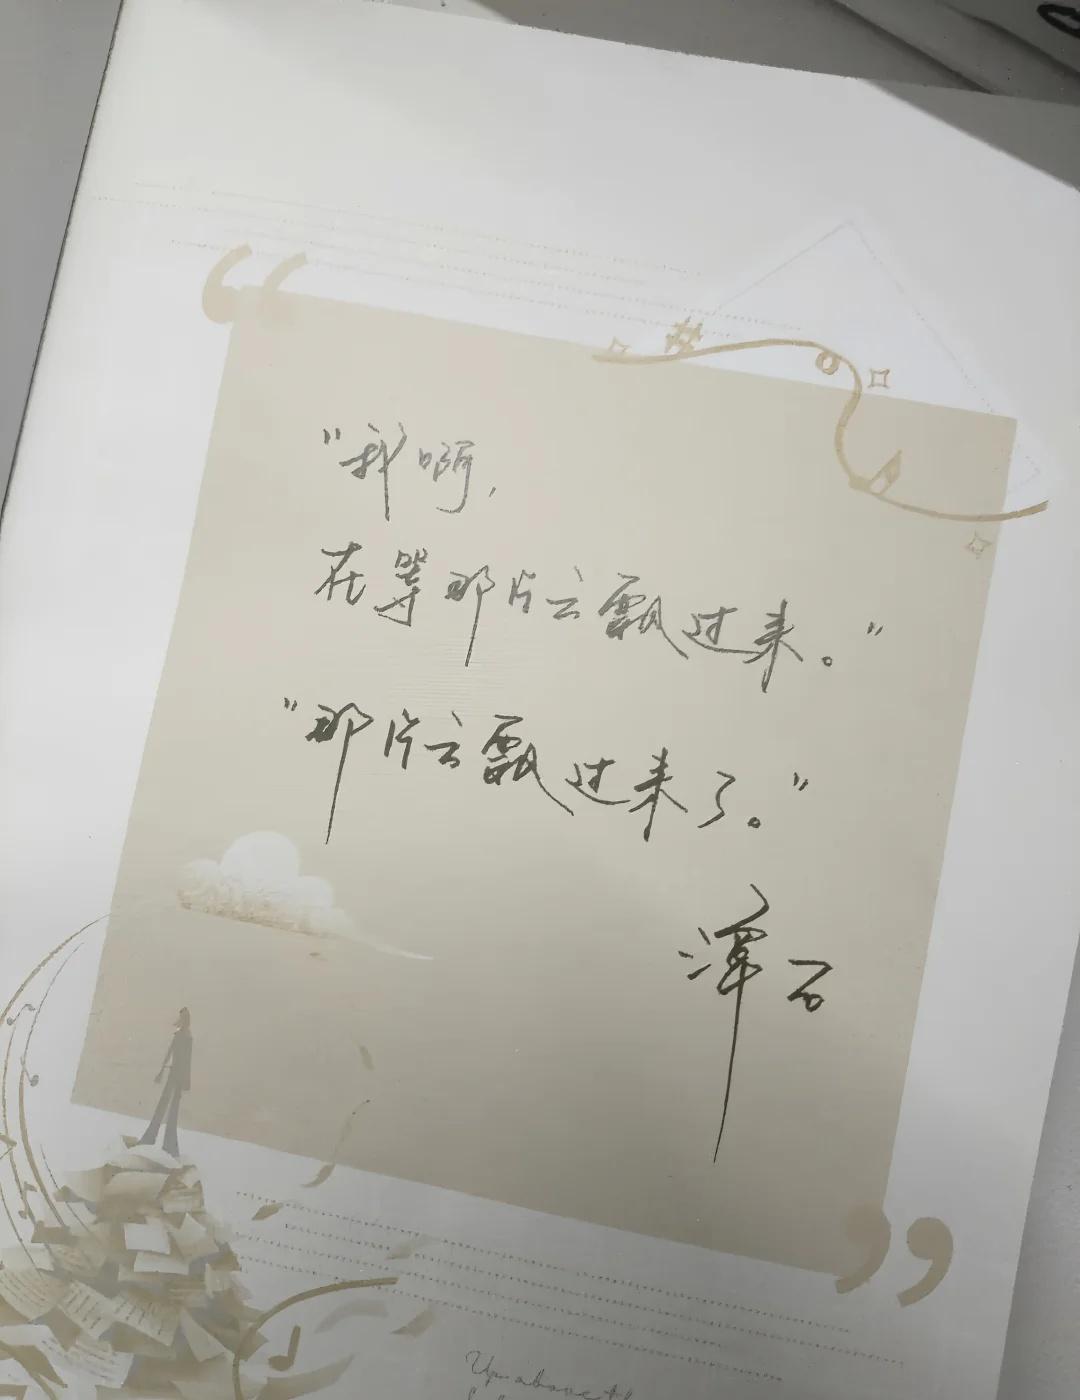 “我啊,
在等那片云飘过来。”
“那片云飘过来了。”
潭石
Up above th